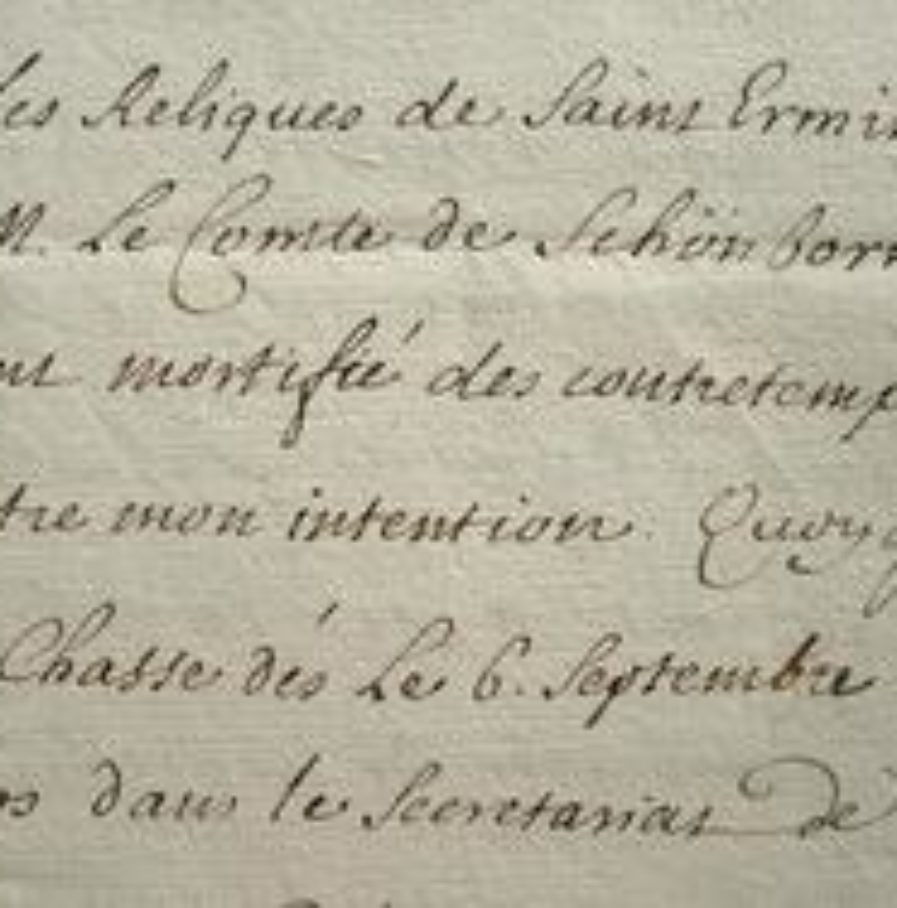 les Reliques de Saint Ermin
M. Le Comte de Schönborn
nt mortifié des contretemp
tre mon intention. Quoyq
Chasse dés Le 6. Septembre
os dans le Secretariat de